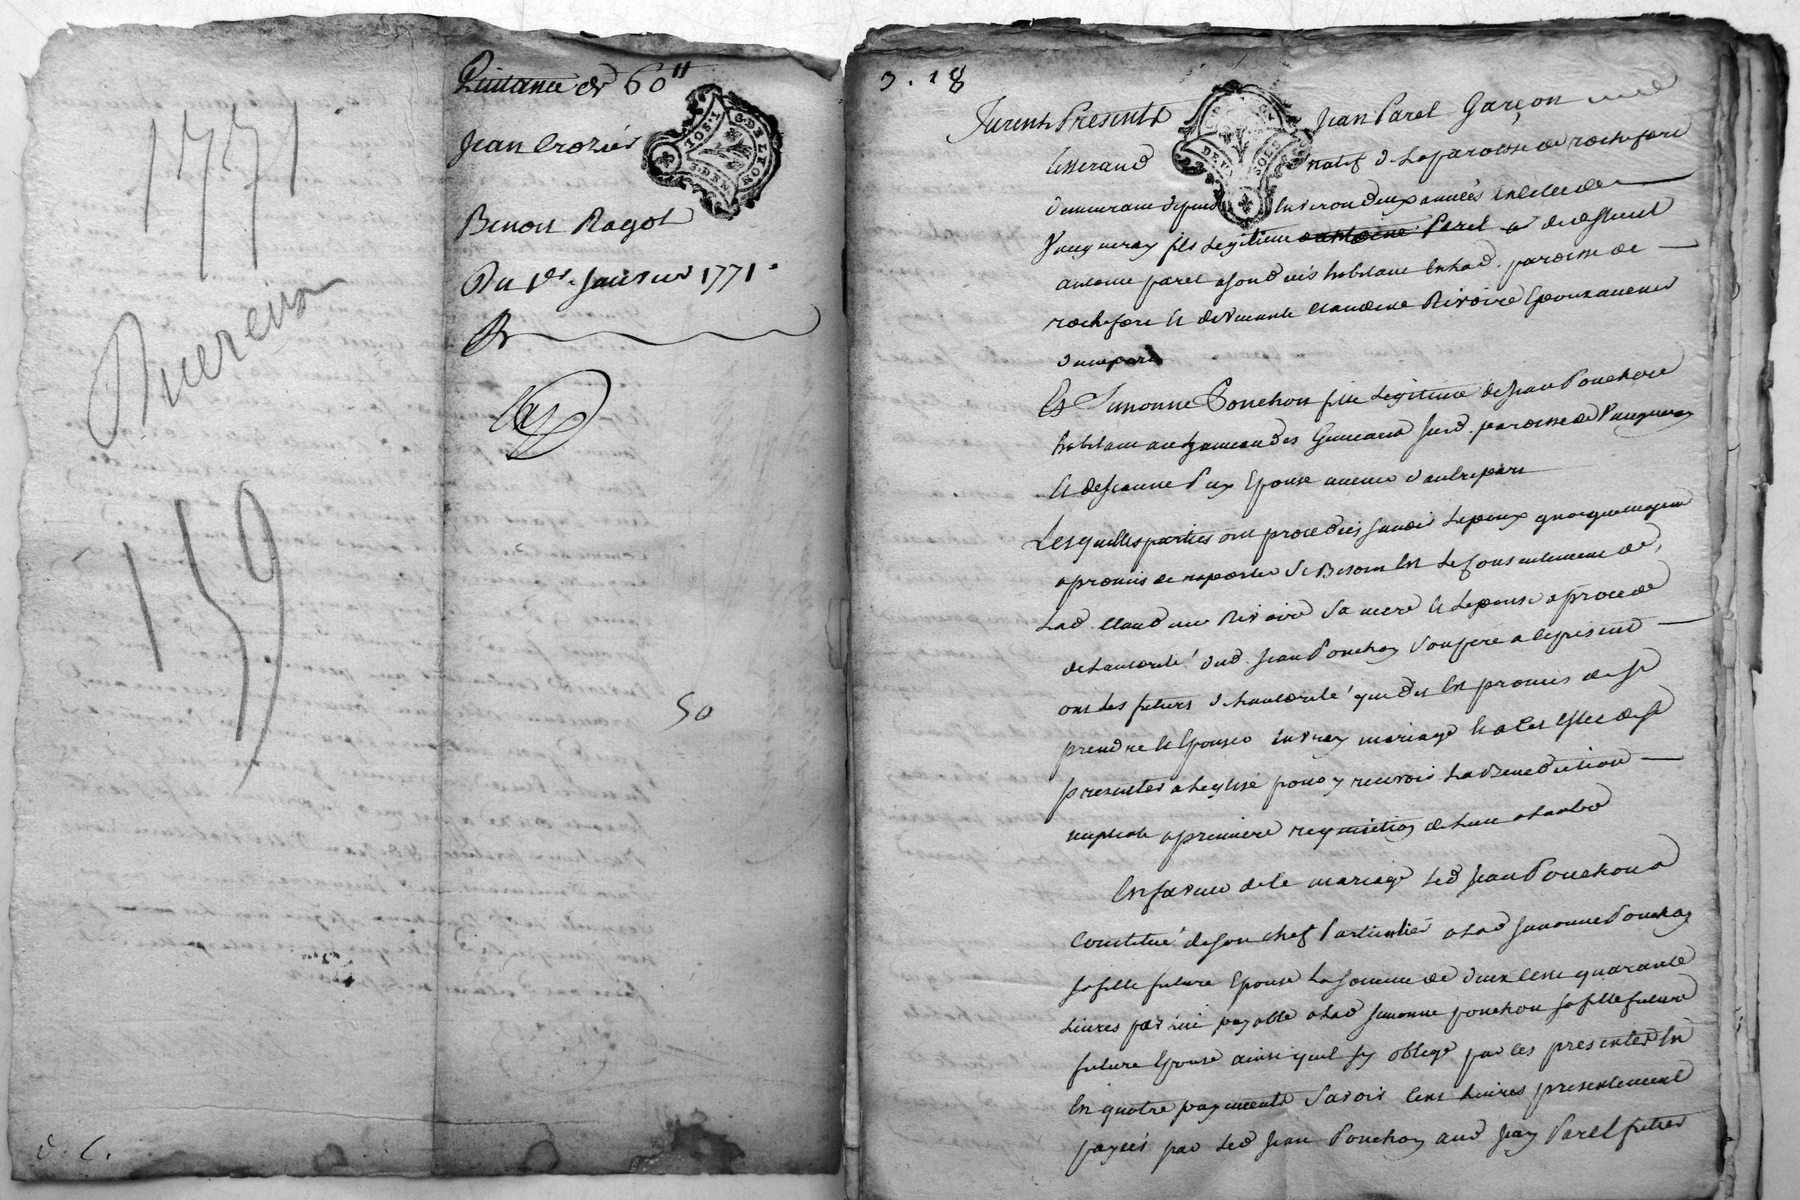 1771
159
Quitance de 60 ₶
Jean Crozier
Benoit Ragot
Du 1er. Janvier 1771.
50
d. C.
3. 18
Furent Presents Jean Parel Garçon
tisserand natif de la paroisse de rochefort
demeurant depuis environ deux années en celle de
Vaugneray fils Legitime d'antoine Parel et de deffunt
antoine parel a son deces habitant en lad. paroisse de
rochefort et de vivante Claudine Rivoire Epoux avenir
d'une part
Et Simonne Ponchon fille Legitime de Jean Ponchon
habitant au hameau des sud. paroisse de Vaugneray
et de Jeanne Puy Epouse avenir d'autre part
Lesquelles parties ont procedées savoir Lepoux quoique majeur
a promis de raporter si Besoin Est Le Consentement de
Lad. Claudine Rivoire Sa mere et Lepouse a procedé
de Lautorité dud. Jean Ponchon Son pere a ce present
ont Les futurs d'autorité que dit Est promis de se
prendre et Epouser en vray mariage et a Cet effet de se
presenter a Leglise pour y recevoir La Benediction
nuptiale a premiere requisition de Lun a Lautre
En faveur de Ce mariage Led Jean Ponchon a
Constitué de Son Chef Particulier a Lad Simonne Ponchon
sa fille future Epouse La somme de deux Cent quarante
Livres par lui payable a Lad Simonne ponchon sa fille future
future Epouse ainsi quil sy oblige par Ces presentes En
En quatre payements Savoir Cent Livres presentement
payées par Led Jean Ponchon aud Jean Parel futur